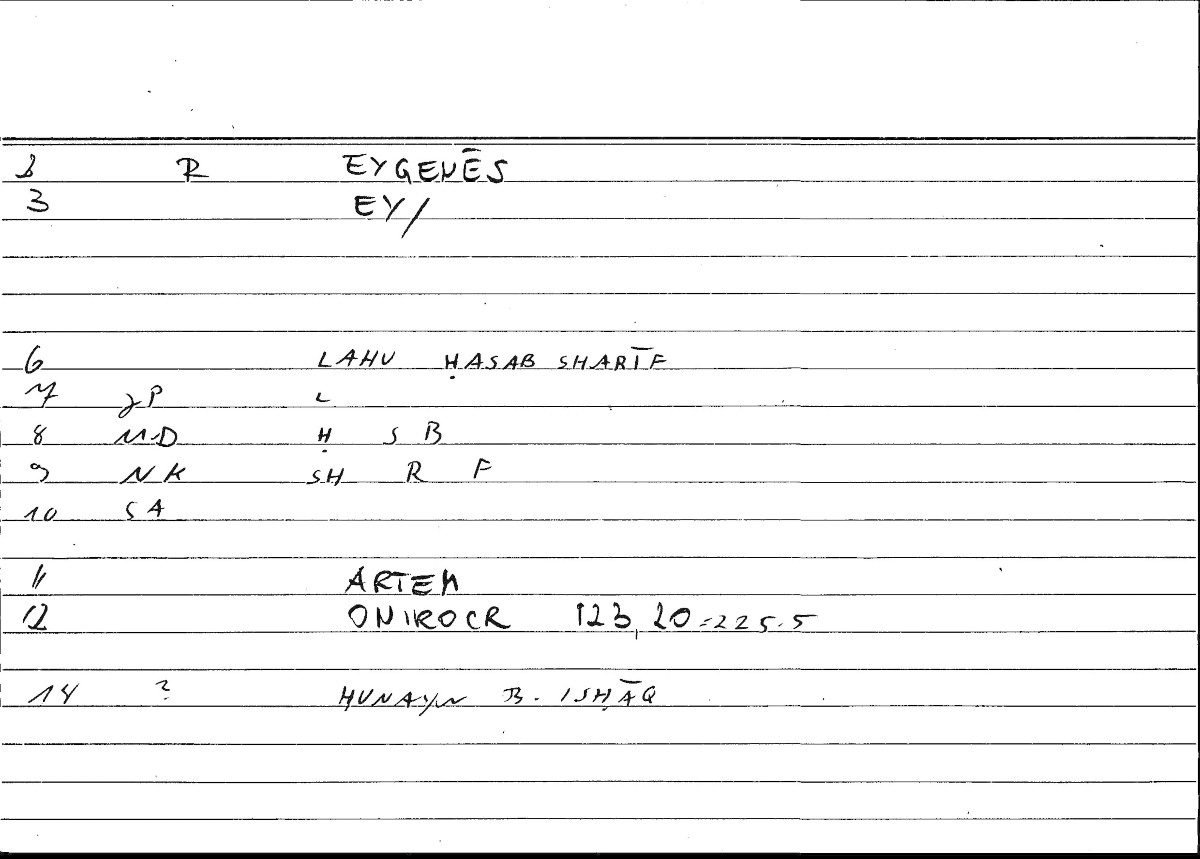 2 R EYGENĒS
3 EY/
6 LAHU ḤASAB SHARĪF
7 JP L
8 MD Ḥ S B
9 NK SH R F
10 SA
11 ARTEM
12 ONIROCR 123,20=225.5
14 ? ḤUNAYN B. ISḤĀQ